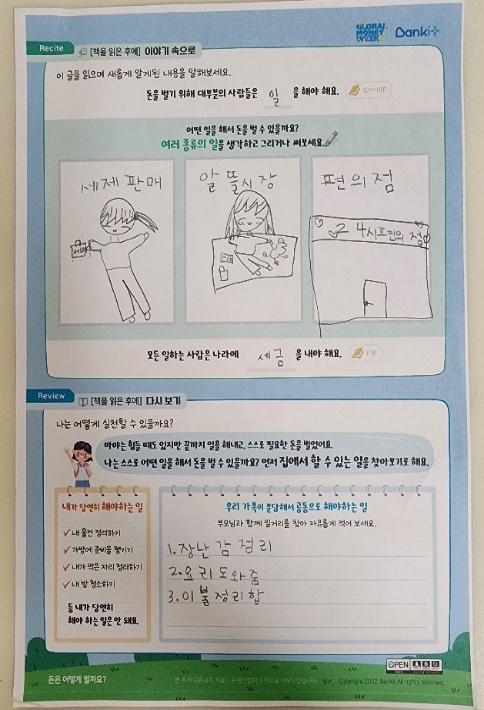 GLOBAL MONEY WEEK Banki+
Recite [책을 읽은 후에] 이야기 속으로
이 글을 읽으며 새롭게 알게된 내용을 말해보세요.
돈을 벌기 위해 대부분의 사람들은 일 을 해야 해요.
어떤 일을 해서 돈을 벌 수 있을까요?
여러 종류의 일을 생각하고 그리거나 써보세요.
세제 판매 알뜰시장 편의점
24시편의점
모든 일하는 사람은 나라에 세금 을 내야 해요.
Review [책을 읽은 후에] 다시 보기
나는 어떻게 실천할 수 있을까요?
마야는 힘들 때도 있지만 끝까지 일을 해내고, 스스로 필요한 돈을 벌었어요.
나는 스스로 어떤 일을 해서 돈을 벌 수 있을까요? 먼저 집에서 할 수 있는 일을 찾아보기로 해요.
내가 당연히 해야하는 일
내 물건 정리하기
가방에 준비물 챙기기
내가 먹은 자리 정리하기
내 방 청소하기
등 내가 당연히
해야 하는 일은 안 돼요.
우리 가족이 분담해서 공동으로 해야하는 일
부모님과 함께 일거리를 찾아 자유롭게 적어 보세요.
1.장난감정리
2.요리도와줌
3.이불정리합
돈은 어떻게 벌까요?
OPEN
Copyright 2022. Banki+ All rights reserved.